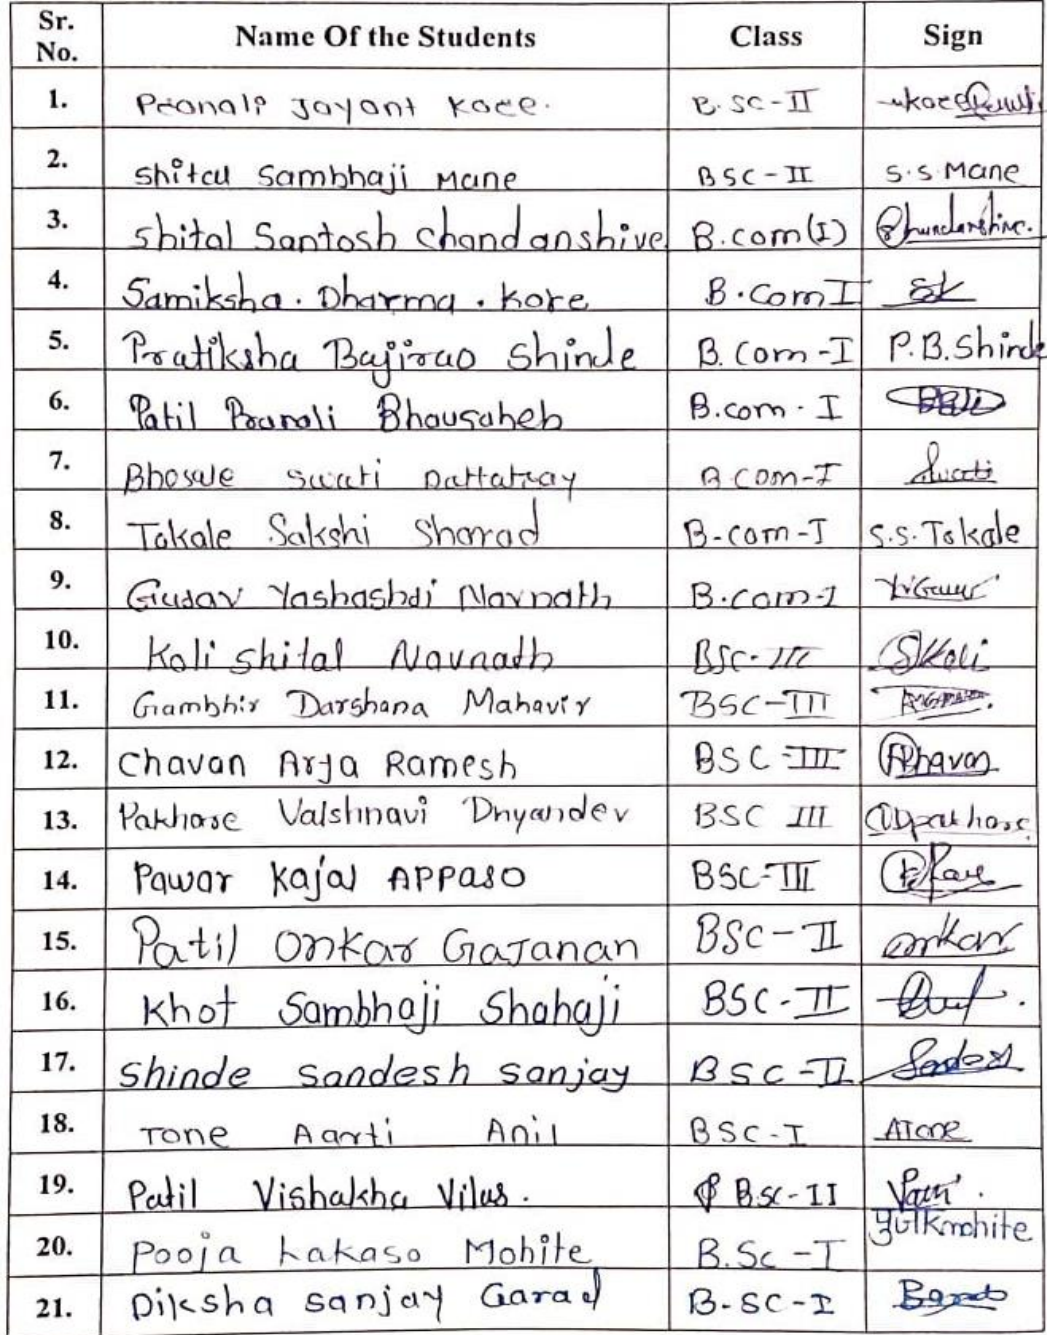 Sr. No. Name Of the Students Class Sign
1. Pranali Jayant Kore. B.SC-II
2. Shital Sambhaji Mane BSC-II S.S.Mane
3. Shital Santosh Chandanshive B.com(I)
4. Samiksha. Dharma. Kore B.Com I SK
5. Pratiksha Bajirao Shinde B.Com-I P.B.Shinde
6. Patil Pranali Bhausaheb B.com. I
7. Bhosale Swati Dattatray B.COM-I Swati
8. Tokale Sakshi Sharad B-com-I S.S.Tokale
9. Yashashri Navnath B.com-I
10. Koli Shital Navnath BSC-III SKoli
11. Gambhir Darshana Mahavir BSC-III
12. Chavan Arja Ramesh BSC-III AChavan
13. Pakhare Vaishnavi Dnyandev BSC III
14. Pawar Kajal APPaso BSC-III
15. Patil Onkar GaJanan BSC-II onkar
16. Khot Sambhaji Shahaji BSC-II
17. Shinde Sandesh Sanjay BSC-II Sandesh
18. Tone Aarti Anil BSC-I ATone
19. Patil Vishakha Vilas. B.Sc-II
20. Pooja kakaso Mohite B.Sc-I
21. Diksha Sanjay Garad B-SC-I